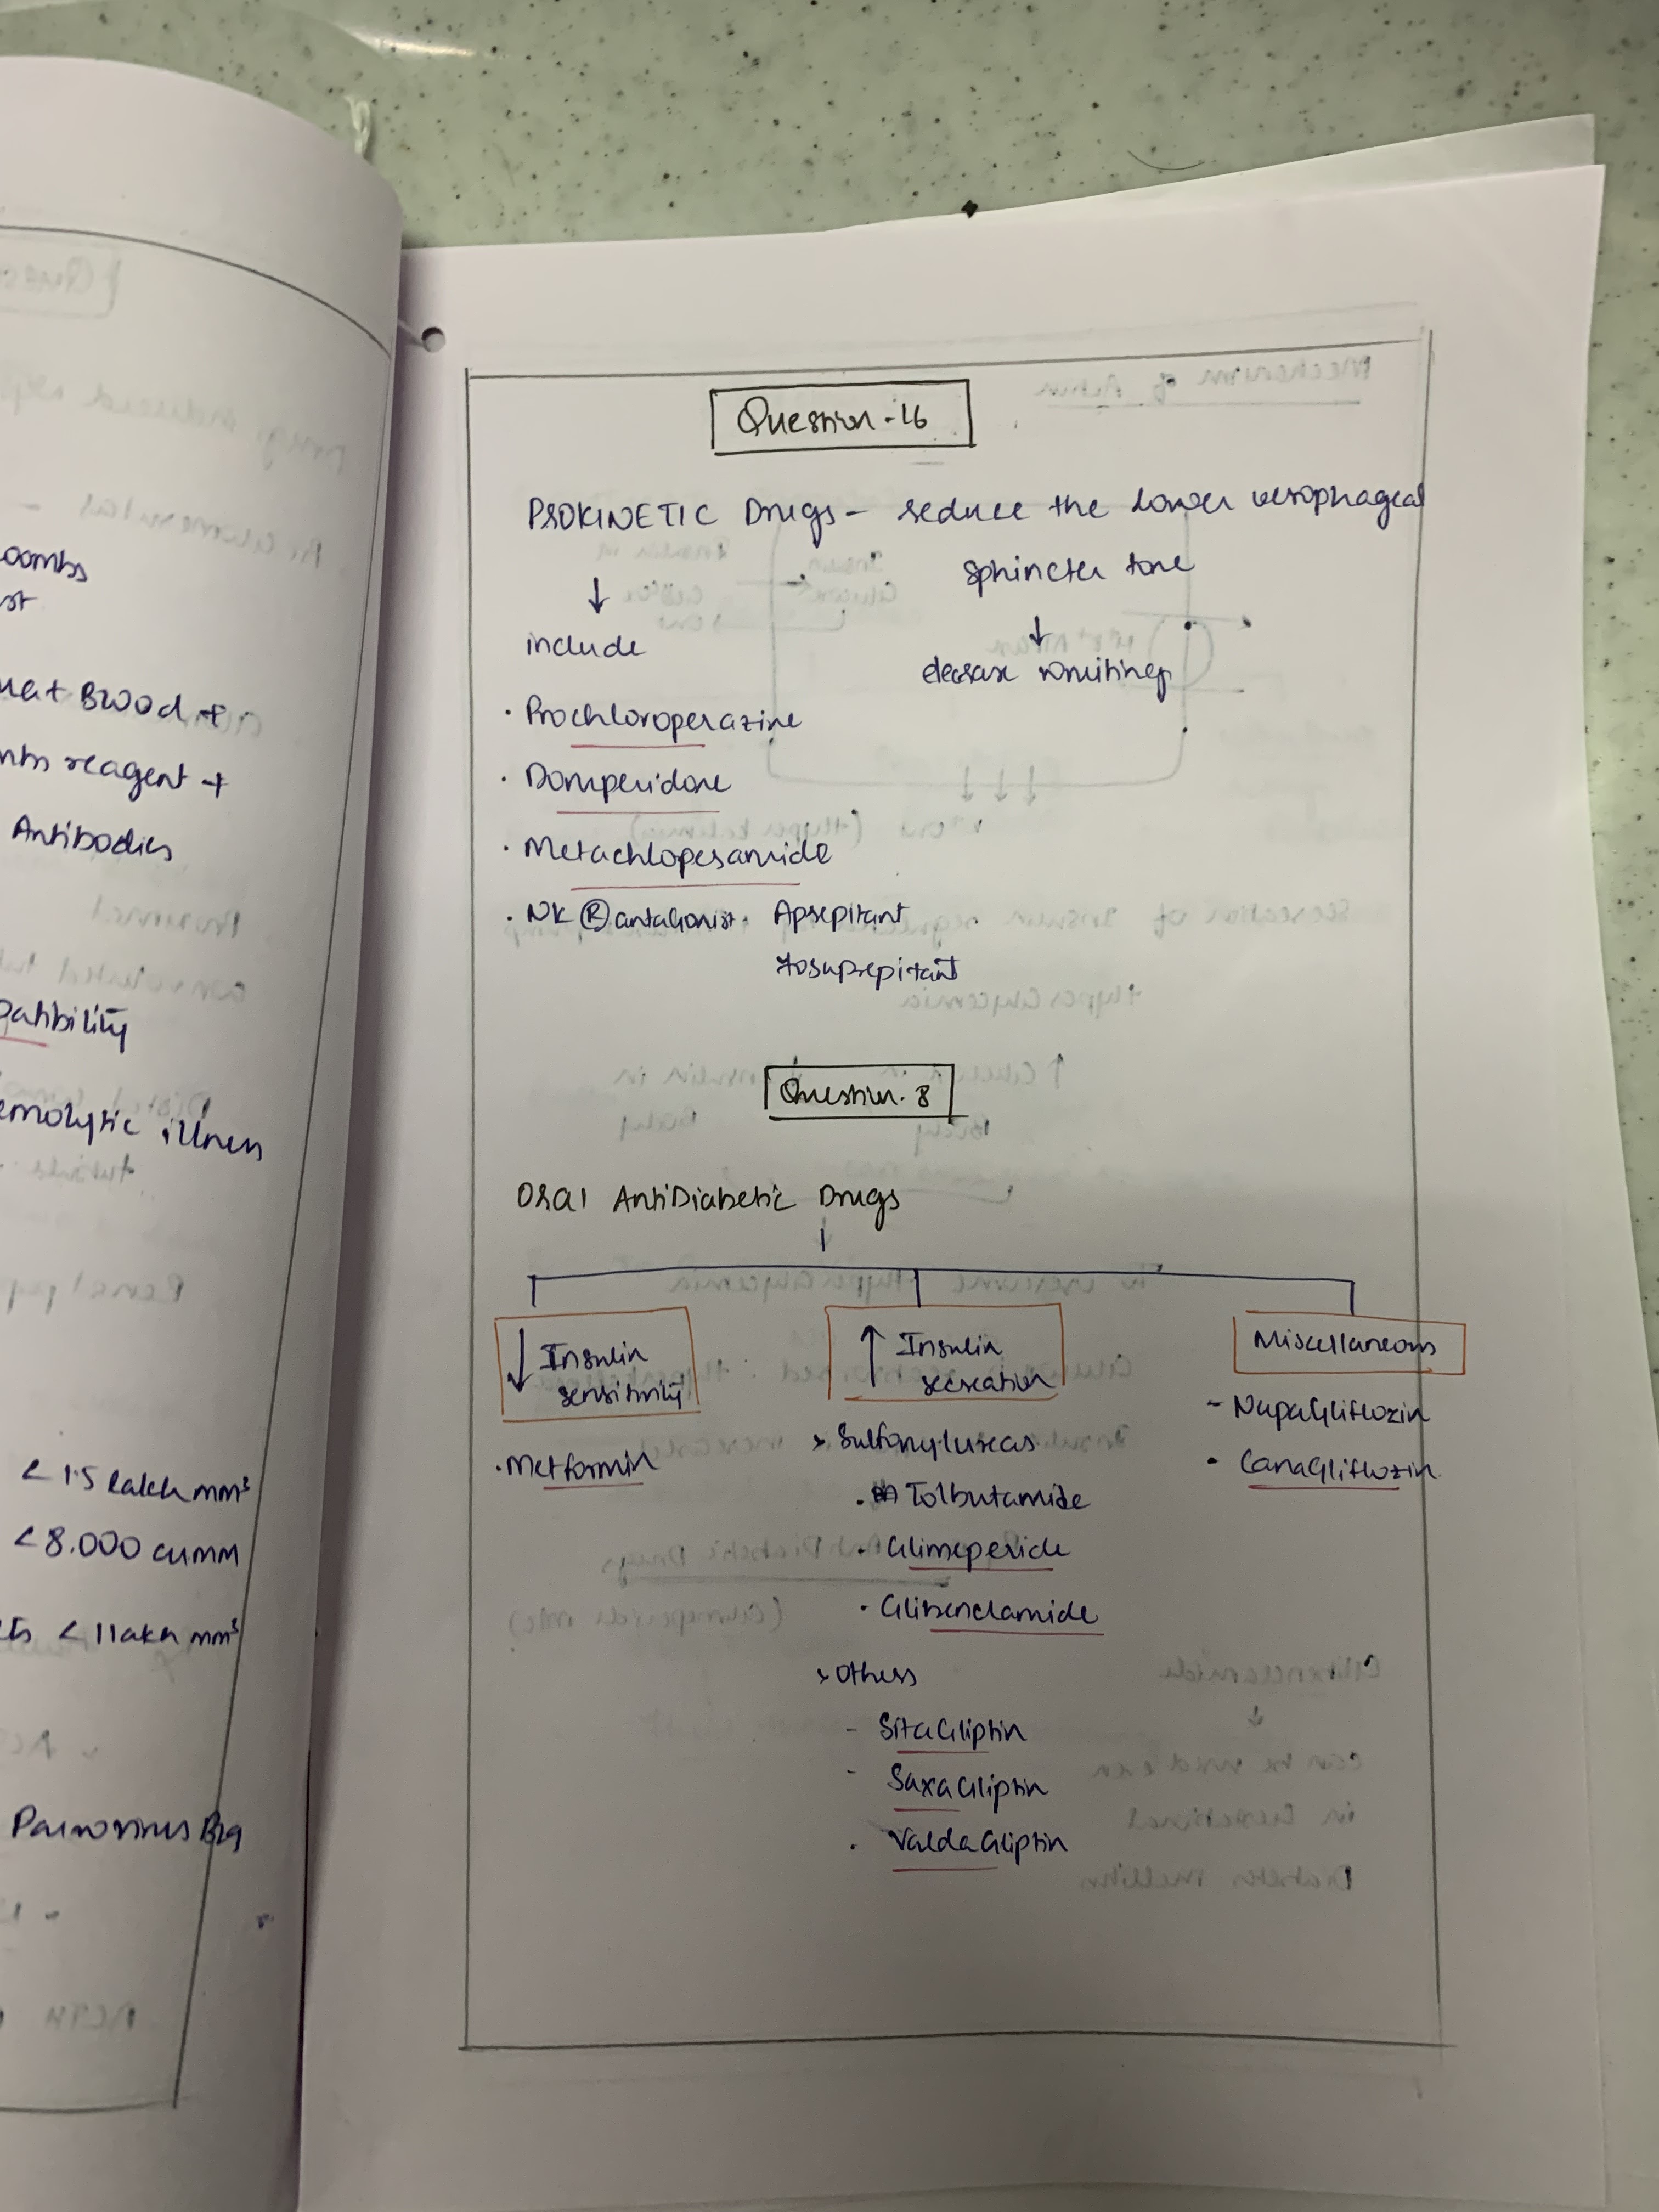 oombs
st
Blood +
mbs reagent +
Antibodies
patibility
emolytic illness
< 1.5 lakh mm³
< 8.000 cumm
ts < 1 lakh mm³
Parvovirus B19
Question-16
PROKINETIC Drugs - reduce the lower oesophageal
sphincter tone
↓
include
↓
decrease vomiting
· Prochloroperazine
· Domperidone
· Metachloperamide
· NK Ⓡ antagonist · Aprepitant
Fosuprepitant
Question. 8
Oral AntiDiabetic Drugs
↓ Insulin sensitivity
· Metformin
↑ Insulin secreation
> Sulfonylureas
· Tolbutamide
· Glimeperide
· Glibenclamide
> Others
- Sitagliptin
- Saxagliptin
· Valdagliptin
Miscellaneous
- Napagliflozin
· Canagliflozin